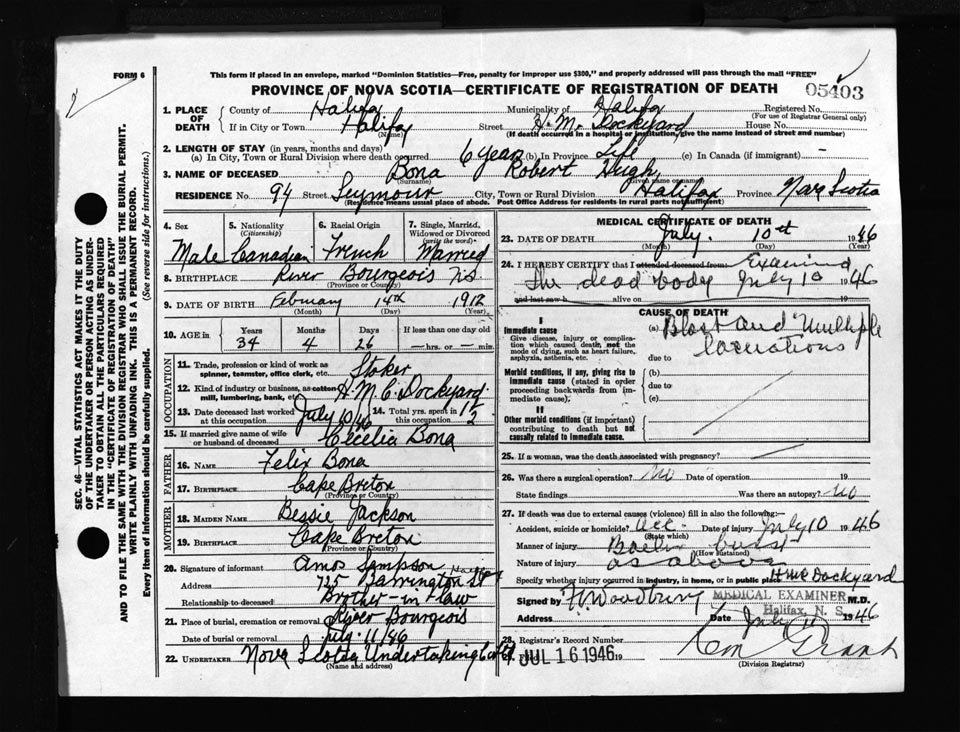 FORM 6
This form if placed in an envelope, marked "Dominion Statistics—Free, penalty for improper use $300," and properly addressed will pass through the mail "FREE"
PROVINCE OF NOVA SCOTIA—CERTIFICATE OF REGISTRATION OF DEATH
05403
1. PLACE OF DEATH
County of Halifax
Municipality of Halifax
Registered No.
(For use of Registrar General only)
If in City or Town Halifax
(Name)
Street H. M. Dockyard
House No.
(If death occurred in a hospital or institution, give the name instead of street and number)
2. LENGTH OF STAY (in years, months and days)
(a) In City, Town or Rural Division where death occurred 6 years (b) In Province Life (c) In Canada (if immigrant) —
3. NAME OF DECEASED Bona Robert Hugh,
(Surname)
RESIDENCE No. 94 Street Seymour City, Town or Rural Division Halifax Province Nova Scotia
(Residence means usual place of abode. Post Office Address for residents in rural parts not sufficient)
4. Sex
Male
5. Nationality
(Citizenship)
Canadian
6. Racial Origin
French
7. Single, Married, Widowed or Divorced
(write the word)
Married
8. BIRTHPLACE River Bourgeois NS
(Province or County)
9. DATE OF BIRTH February 14th 1912
(Month) (Day) (Year)
10. AGE in
Years Months Days If less than one day old
34 4 26 — hrs. or — min.
OCCUPATION
11. Trade, profession or kind of work as spinner, teamster, office clerk, etc. Stoker
12. Kind of industry or business, as cotton mill, lumbering, bank, etc. H.M.C. Dockyard
13. Date deceased last worked at this occupation July 10/46
14. Total yrs. spent in this occupation 1½
15. If married give name of wife or husband of deceased Cecelia Bona
FATHER
16. NAME Felix Bona
17. BIRTHPLACE Cape Breton
(Province or Country)
MOTHER
18. MAIDEN NAME Bessie Jackson
19. BIRTHPLACE Cape Breton
(Province or Country)
20. Signature of informant Amos Sampson
Address 725 Barrington St Halifax
Relationship to deceased Brother-in-law
21. Place of burial, cremation or removal River Bourgeois
Date of burial or removal July 11/46
22. UNDERTAKER Nova Scotia Undertaking Co Ltd
(Name and address)
MEDICAL CERTIFICATE OF DEATH
23. DATE OF DEATH July. 10th 1946
(Month) (Day) (Year)
24. I HEREBY CERTIFY that I attended deceased from: Examined
the dead body July 10 1946
and last saw h alive on 19
CAUSE OF DEATH
I
Immediate cause
Give disease, injury or complication which caused death, not the mode of dying, such as heart failure, asphyxia, asthenia, etc.
(a) Blast and Multiple
lacerations
due to
Morbid conditions, if any, giving rise to immediate cause (stated in order proceeding backwards from immediate cause).
(b)
due to
(c)
II
Other morbid conditions (if important) contributing to death but not causally related to immediate cause.
25. If a woman, was the death associated with pregnancy? —
26. Was there a surgical operation? No Date of operation 19
State findings Was there an autopsy? No
27. If death was due to external causes (violence) fill in also the following:—
Accident, suicide or homicide? Acc. Date of injury July 10 1946
(State which)
Manner of injury Boiler burst
(How sustained)
Nature of injury as above
Specify whether injury occurred in industry, in home, or in public place HMC Dockyard
Signed by H Woodbury MEDICAL EXAMINER M.D.
Halifax, N. S.
Address Date July 11 1946
28. Registrar's Record Number
JUL 16 1946 19
(Division Registrar)
SEC. 46—VITAL STATISTICS ACT MAKES IT THE DUTY
OF THE UNDERTAKER OR PERSON ACTING AS UNDERTAKER
TO OBTAIN ALL THE PARTICULARS REQUIRED
IN THE "CERTIFICATE OF REGISTRATION OF DEATH"
AND TO FILE THE SAME WITH THE DIVISION REGISTRAR WHO SHALL ISSUE THE BURIAL PERMIT.
WRITE PLAINLY WITH UNFADING INK. THIS IS A PERMANENT RECORD.
Every item of information should be carefully supplied. (See reverse side for instructions.)